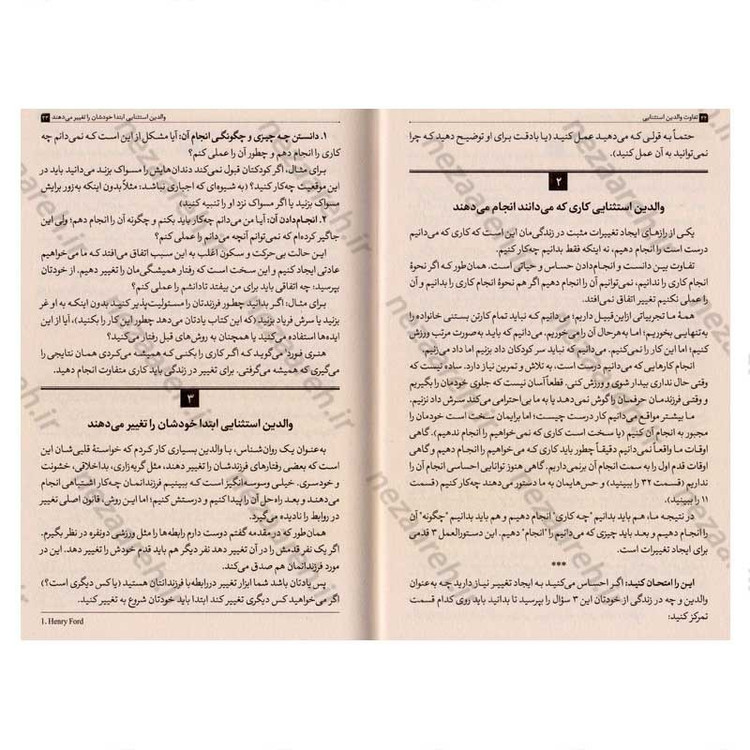 ۲۲ تفاوت والدین استثنایی
حتماً به قولی که می‌دهید عمل کنید (یا بادقت برای او توضیح دهید که چرا
نمی‌توانید به آن عمل کنید).
۲
والدین استثنایی کاری که می‌دانند انجام می‌دهند
یکی از رازهای ایجاد تغییرات مثبت در زندگی‌مان این است که کاری که می‌دانیم
درست است را انجام دهیم، نه اینکه فقط بدانیم چه‌کار کنیم.
تفاوت بین دانست و انجام‌دادن حساس و حیاتی است. همان‌طور که اگر نحوهٔ
انجام کاری را ندانیم، نمی‌توانیم آن را انجام دهیم اگر هم نحوهٔ انجام کاری را بدانیم و آن
را عملی نکنیم تغییر اتفاق نمی‌افتد.
همهٔ ما تجربیاتی ازاین‌قبیل داریم؛ می‌دانیم که نباید تمام کارتن بستنی خانواده را
به‌تنهایی بخوریم؛ اما به‌هرحال آن را می‌خوریم. می‌دانیم که باید به‌صورت مرتب ورزش
کنیم؛ اما این کار را نمی‌کنیم. می‌دانیم که نباید سر کودکان داد بزنیم اما داد می‌زنیم.
انجام کارهایی که می‌دانیم درست است، به تلاش و تمرین نیاز دارد. ساده نیست که
وقتی حال نداری بیدار شوی و ورزش کنی. قطعاً آسان نیست که جلوی خودمان را بگیریم
و وقتی فرزندمان حرفمان را گوش نمی‌دهد یا به ما بی‌احترامی می‌کند سرش داد نزنیم.
ما بیشتر مواقع می‌دانیم کار درست چیست؛ اما برایمان سخت است خودمان را
مجبور به انجام آن کنیم (یا سخت است کاری که نمی‌خواهیم را انجام ندهیم). گاهی
اوقات ما واقعاً نمی‌دانیم دقیقاً چطور باید کاری که می‌خواهیم را انجام دهیم و گاهی
اوقات قدم اول را به سمت انجام آن برنمی‌داریم. گاهی هنوز توانایی احساسی انجام آن را
نداریم (قسمت ۳۲ را ببینید) و حس‌هایمان به ما دستور می‌دهند چه‌کار کنیم (قسمت
۱۱ را ببینید).
در نتیجه ما، هم باید بدانیم "چه کاری" انجام دهیم و هم باید بدانیم "چگونه" آن
را انجام دهیم و بعد باید چیزی که می‌دانیم را "انجام" دهیم. این دستورالعمل ۳ قدمی
برای ایجاد تغییرات است.
***
این را امتحان کنید: اگر احساس می‌کنید به ایجاد تغییر نیاز دارید چه به‌عنوان
والدین و چه در زندگی از خودتان این ۳ سؤال را بپرسید تا بدانید باید روی کدام قسمت
تمرکز کنید:
والدین استثنایی ابتدا خودشان را تغییر می‌دهند ۲۳
۱. دانستن چه چیزی و چگونگی انجام آن: آیا مشکل از این است که نمی‌دانم چه
کاری را انجام دهم و چطور آن را عملی کنم؟
برای مثال، اگر کودکتان قبول نمی‌کند دندان‌هایش را مسواک بزند می‌دانید باید در
این موقعیت چه‌کار کنید؟ (به شیوه‌ای که اجباری نباشد: مثلاً بدون اینکه به‌زور برایش
مسواک بزنید یا اگر مسواک نزد او را تنبیه کنید)
۲. انجام‌دادن آن: آیا من می‌دانم چه‌کار باید بکنم و چگونه آن را انجام دهم؛ ولی این
جاگیر کرده‌ام که نمی‌توانم آنچه می‌دانم را عملی کنم؟
این حالت بی‌حرکت و سکون اغلب به این سبب اتفاق می‌افتد که ما می‌خواهیم
عادتی ایجاد کنیم و این سخت است که رفتار همیشگی‌مان را تغییر دهیم. از خودتان
بپرسید: چه اتفاقی باید برای من بیفتد تا دانشم را عملی کنم؟
برای مثال: اگر بدانید چطور فرزندتان را مسئولیت‌پذیر کنید بدون اینکه به او غر
بزنید یا سرش فریاد بزنید (که این کتاب یادتان می‌دهد چطور این کار را بکنید)، آیا از این
ایده‌ها استفاده می‌کنید یا همچنان به روش‌های قبل رفتار می‌کنید؟
هنری فورد¹ می‌گوید که اگر کاری را بکنی که همیشه می‌کردی همان نتایجی را
می‌گیری که همیشه می‌گرفتی. برای تغییر در زندگی باید کاری متفاوت انجام دهید.
۳
والدین استثنایی ابتدا خودشان را تغییر می‌دهند
به‌عنوان یک روان‌شناس، با والدین بسیاری کار کردم که خواستهٔ قلبی‌شان این
است که بعضی رفتارهای فرزندشان را تغییر دهند، مثل گریه‌زاری، بداخلاقی، خشونت
و خودسری. خیلی وسوسه‌انگیز است که ببینیم فرزندانمان چه‌کار اشتباهی انجام
می‌دهند و بعد راه‌حل آن را پیدا کنیم و درستش کنیم؛ اما این روش، قانون اصلی تغییر
در روابط را نادیده می‌گیرد.
همان‌طور که در مقدمه گفتم دوست دارم رابطه‌ها را مثل ورزشی دونفره در نظر بگیرم.
اگر یک نفر قدمش را در آن تغییر دهد نفر دیگر هم باید قدم خودش را تغییر دهد. این در
مورد فرزندانمان هم صدق می‌کند.
پس یادتان باشد شما ابزار تغییر دررابطه‌با فرزندانتان هستید (یا کس دیگری است؟)
اگر می‌خواهید کس دیگری تغییر کند ابتدا باید خودتان شروع به تغییر کنید.
1. Henry Ford
nezaareh.ir